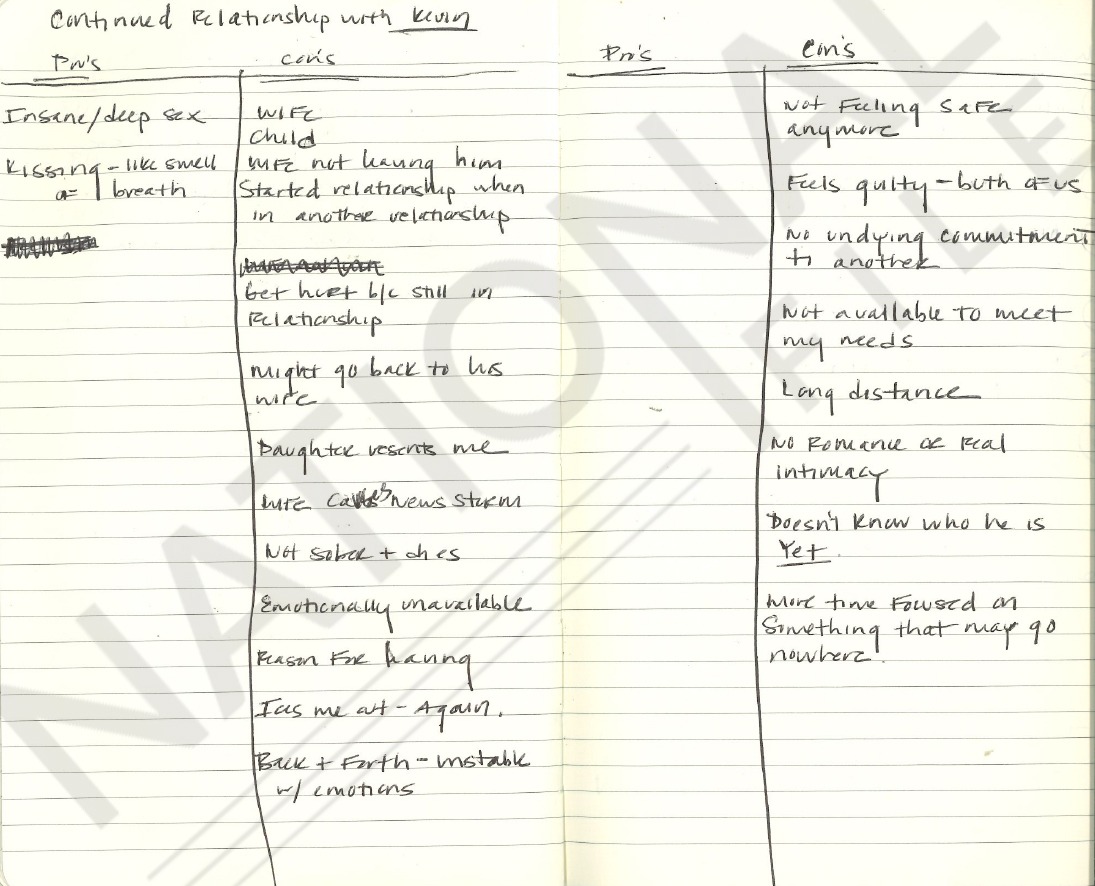 Continued Relationship with Kevin
Pro's
Con's
Insane/deep sex
Kissing - like smell
of breath
WIFE
Child
WIFE not leaving him
Started relationship when
in another relationship
Get hurt b/c still in
Relationship
Might go back to his
wife
Daughter resents me
WIFE Causes News Storm
Not sober + dies
Emotionally unavailable
Reason For leaving
Ices me out - Again.
Back + Forth - unstable
w/ emotions
Pro's
Con's
Not Feeling Safe
anymore
Feels guilty - both of us
No undying commitment
to another
Not available to meet
my needs
Long distance
No Romance or Real
intimacy
Doesn't know who he is
Yet.
More time Focused on
Something that may go
nowhere.
NATIONAL
FILE